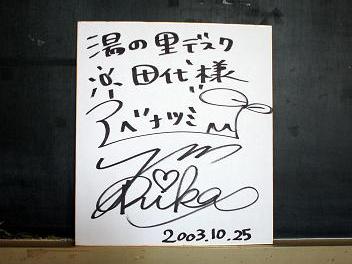 湯の里デスク
田代様
アベナツミ
Rika
2003.10.25